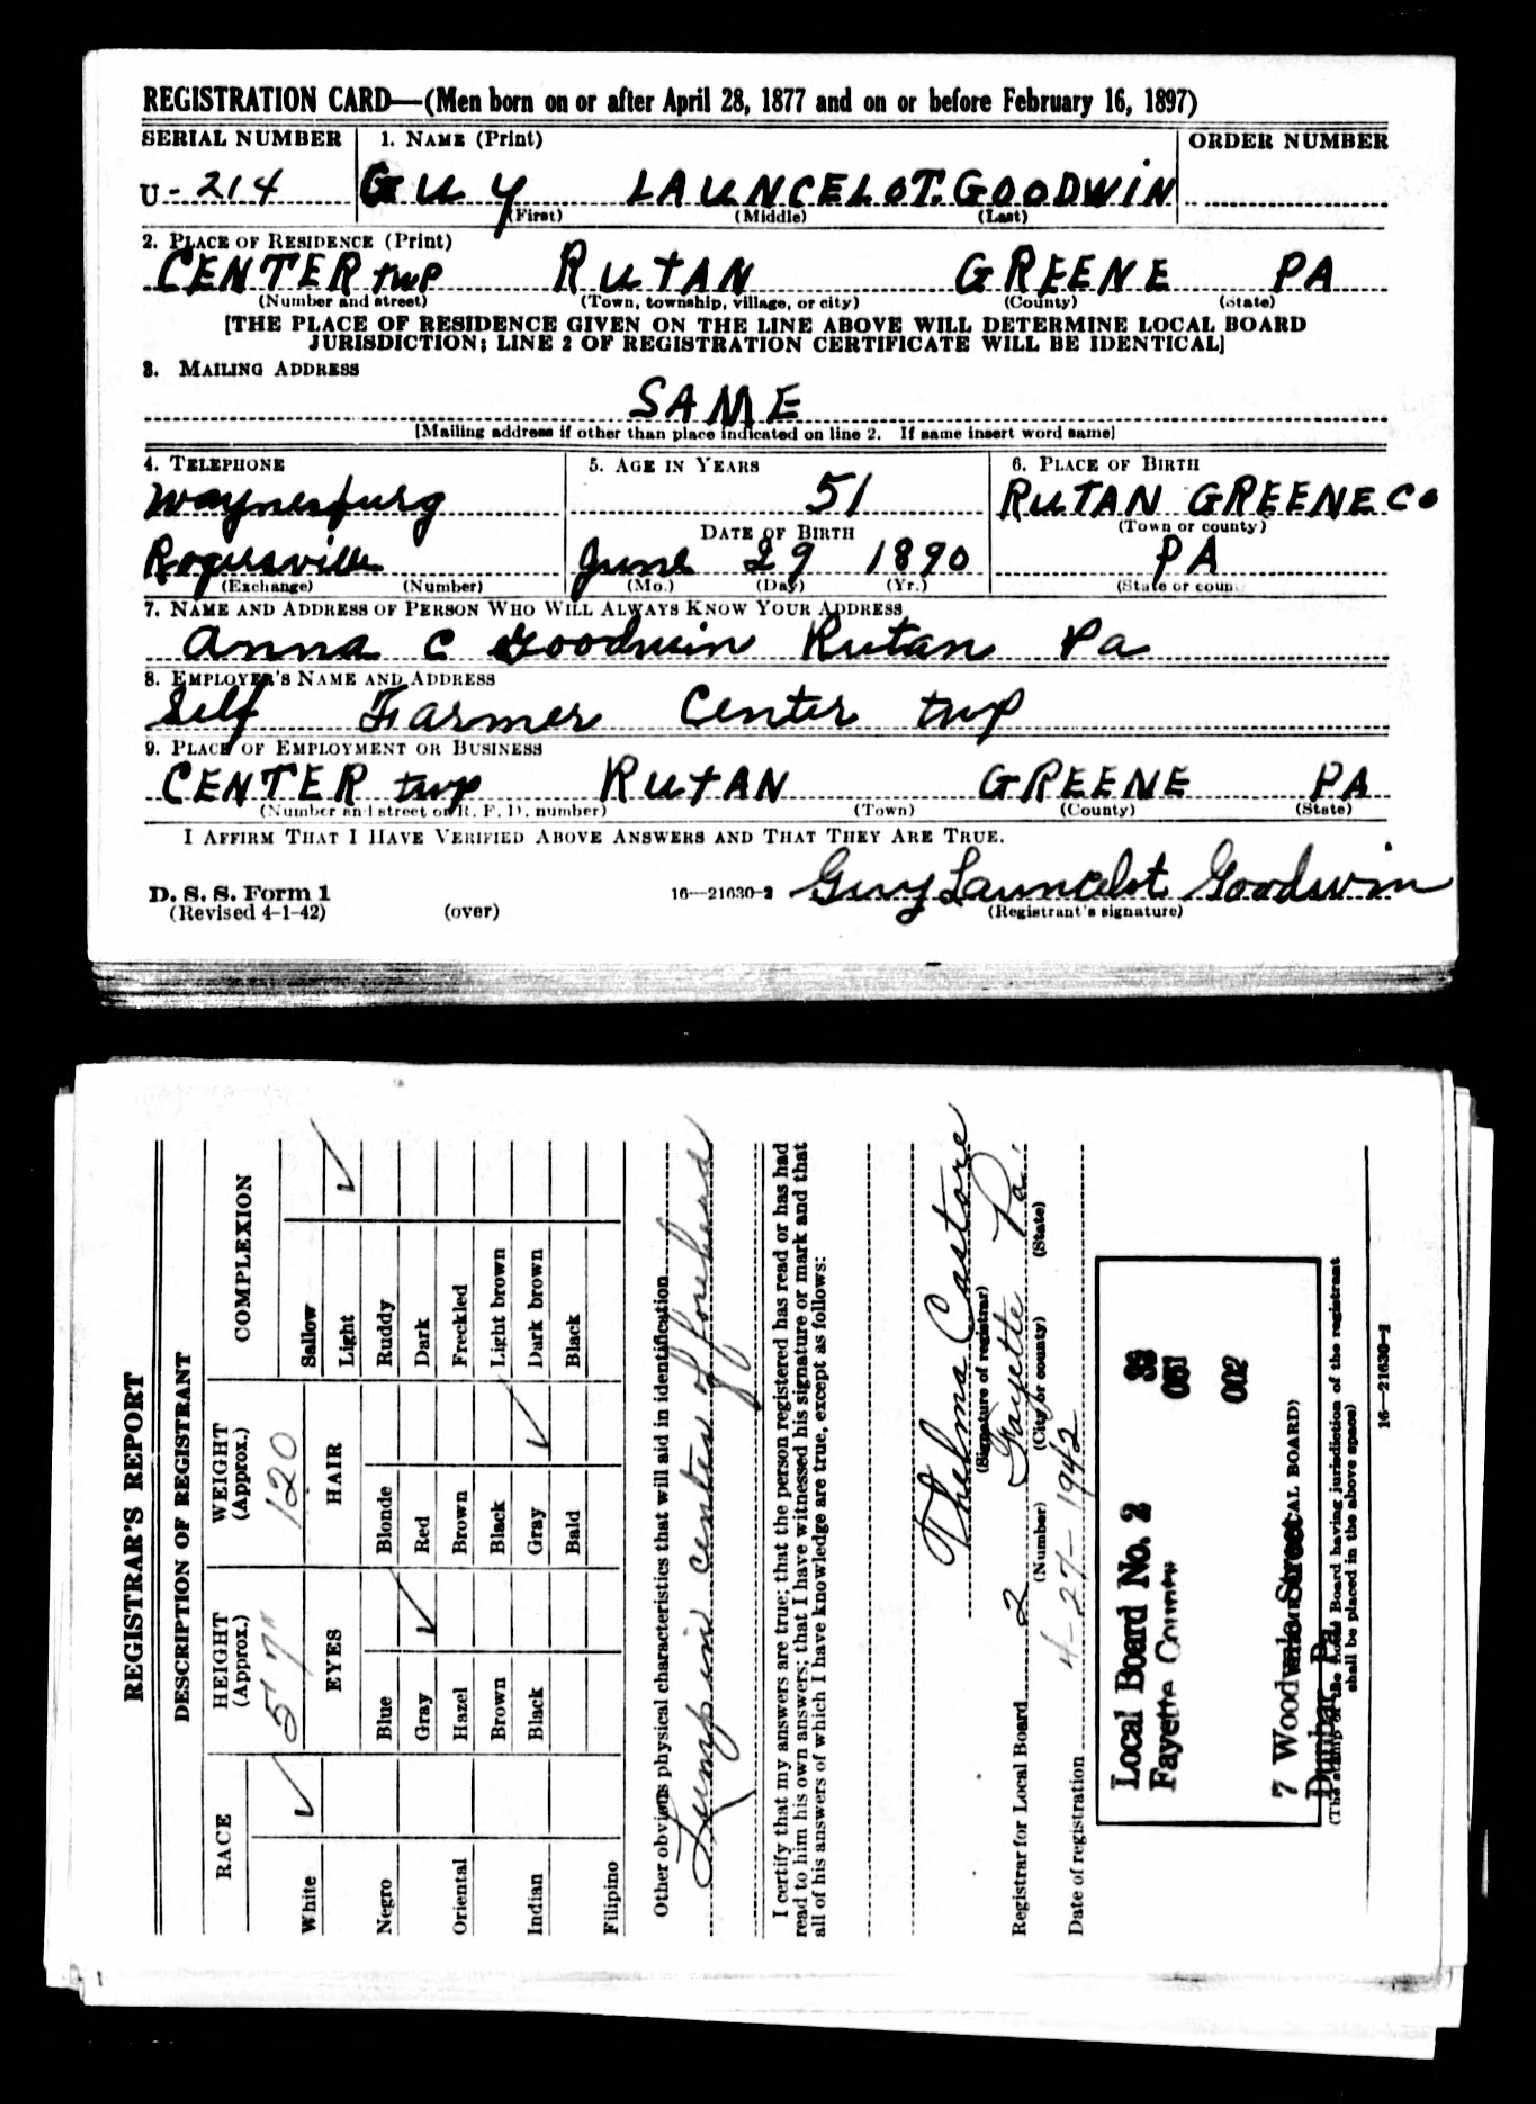 REGISTRATION CARD—(Men born on or after April 28, 1877 and on or before February 16, 1897)
SERIAL NUMBER 1. NAME (Print) ORDER NUMBER
U-214 GUY LAUNCELOT. GOODWIN
(First) (Middle) (Last)
2. PLACE OF RESIDENCE (Print)
CENTER twp RUTAN GREENE PA
(Number and street) (Town, township, village, or city) (County) (State)
[THE PLACE OF RESIDENCE GIVEN ON THE LINE ABOVE WILL DETERMINE LOCAL BOARD
JURISDICTION; LINE 2 OF REGISTRATION CERTIFICATE WILL BE IDENTICAL]
3. MAILING ADDRESS
SAME
[Mailing address if other than place indicated on line 2. If same insert word same]
4. TELEPHONE 5. AGE IN YEARS 6. PLACE OF BIRTH
Waynesburg 51 RUTAN GREENE Co
DATE OF BIRTH (Town or county)
Rogersville June 29 1890 PA
(Exchange) (Number) (Mo.) (Day) (Yr.) (State or coun
7. NAME AND ADDRESS OF PERSON WHO WILL ALWAYS KNOW YOUR ADDRESS
Anna C Goodwin Rutan Pa
8. EMPLOYER'S NAME AND ADDRESS
Self Farmer Center twp
9. PLACE OF EMPLOYMENT OR BUSINESS
CENTER twp RUTAN GREENE PA
(Number and street or R. F. D. number) (Town) (County) (State)
I AFFIRM THAT I HAVE VERIFIED ABOVE ANSWERS AND THAT THEY ARE TRUE.
D. S. S. Form 1 16—21630-2 Guy Launcelot Goodwin
(Revised 4-1-42) (over) (Registrant's signature)
REGISTRAR'S REPORT
DESCRIPTION OF REGISTRANT
RACE HEIGHT (Approx.) WEIGHT (Approx.) COMPLEXION
5'7" 120
White ✓ EYES HAIR Sallow
Light ✓
Negro Blue Blonde Ruddy
Gray ✓ Red Dark
Oriental Hazel Brown Freckled
Brown Black Light brown
Indian Black Gray ✓ Dark brown
Bald Black
Filipino
Other obvious physical characteristics that will aid in identification
Lump in center of forehead
I certify that my answers are true; that the person registered has read or has had
read to him his own answers; that I have witnessed his signature or mark and that
all of his answers of which I have knowledge are true, except as follows:
Thelma Castore
(Signature of registrar)
Registrar for Local Board 2 Fayette Pa.
(Number) (City or county) (State)
Date of registration 4-27-1942
Local Board No. 2 39
Fayette County 051
002
7 Woodvale Street
AL BOARD)
Dunbar, Pa
(The stamp of the Local Board having jurisdiction of the registrant
shall be placed in the above space)
16—21630-2